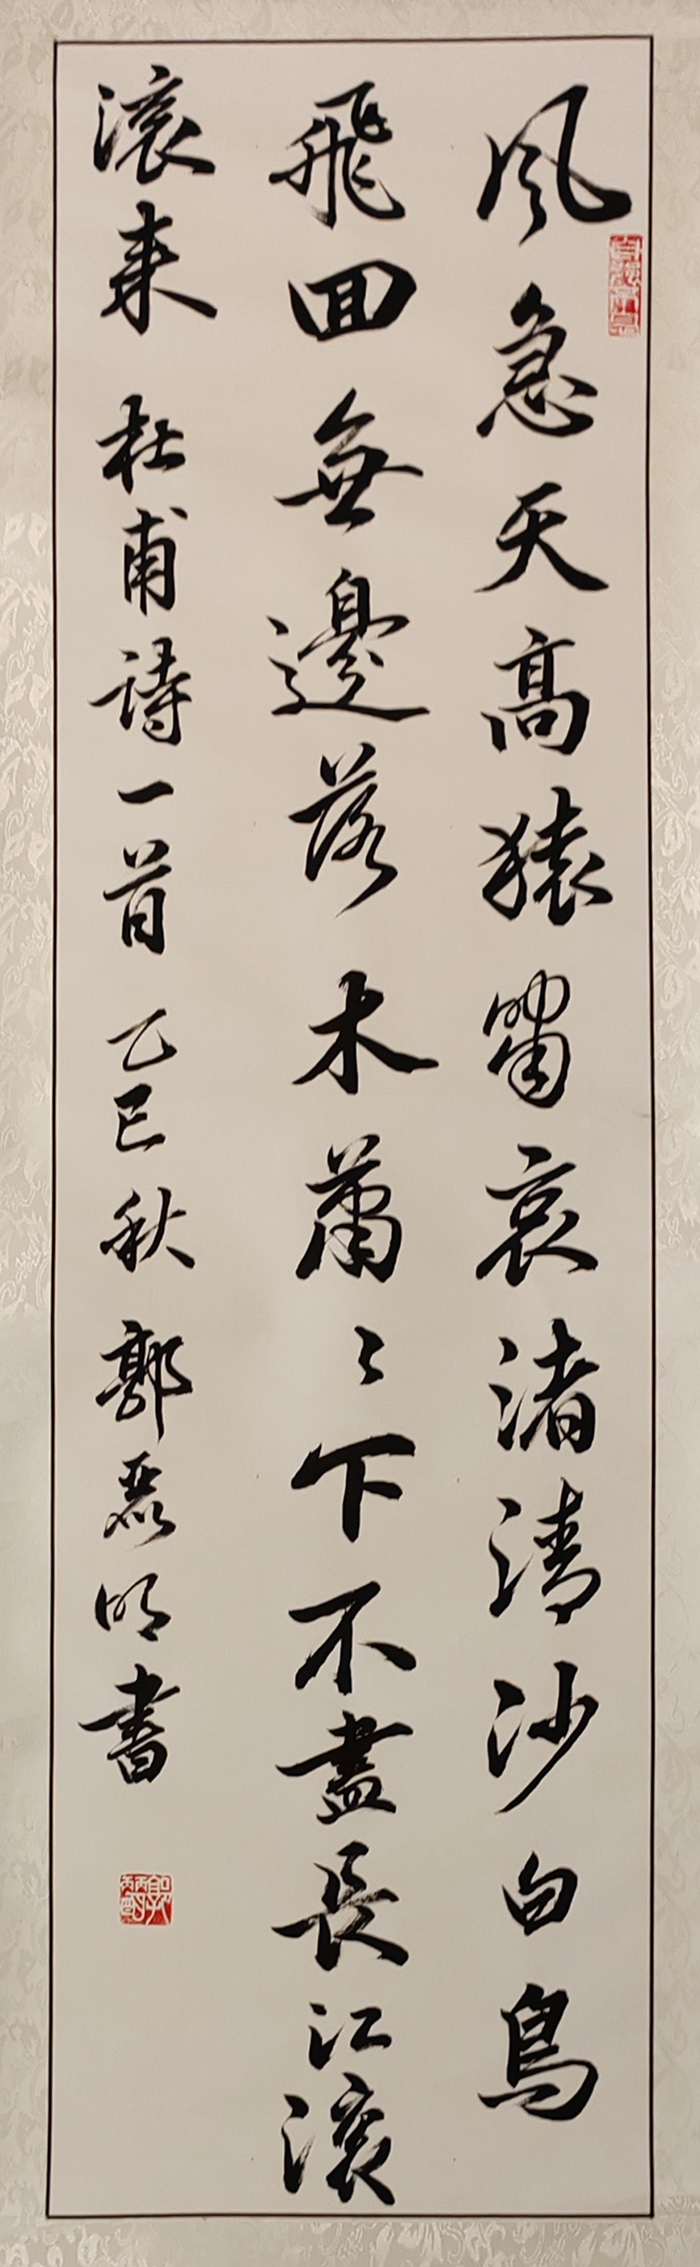 風急天高猿嘯哀渚清沙白鳥
飛回無邊落木蕭〻下不盡長江滚
滚来 杜甫詩一首 乙巳秋 郭 明書